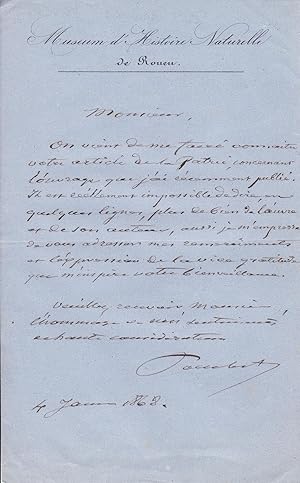 Museum d'Histoire Naturelle
de Rouen.
Monsieur,
On vient de me faire connaitre
votre article de la Patrie concernant
l'ouvrage que j'ai récemment publié.
Il est réellement impossible de dire, en
quelques lignes, plus de bien de l'œuvre
et de son auteur, aussi je m'empresse
de vous adresser mes remerciements
et l'expression de la vive gratitude
que m'inspire votre bienveillance.
Veuillez recevoir Monsieur
l'hommage de mes sentiments
et haute considération
Pouchet
4 Janv 1868.